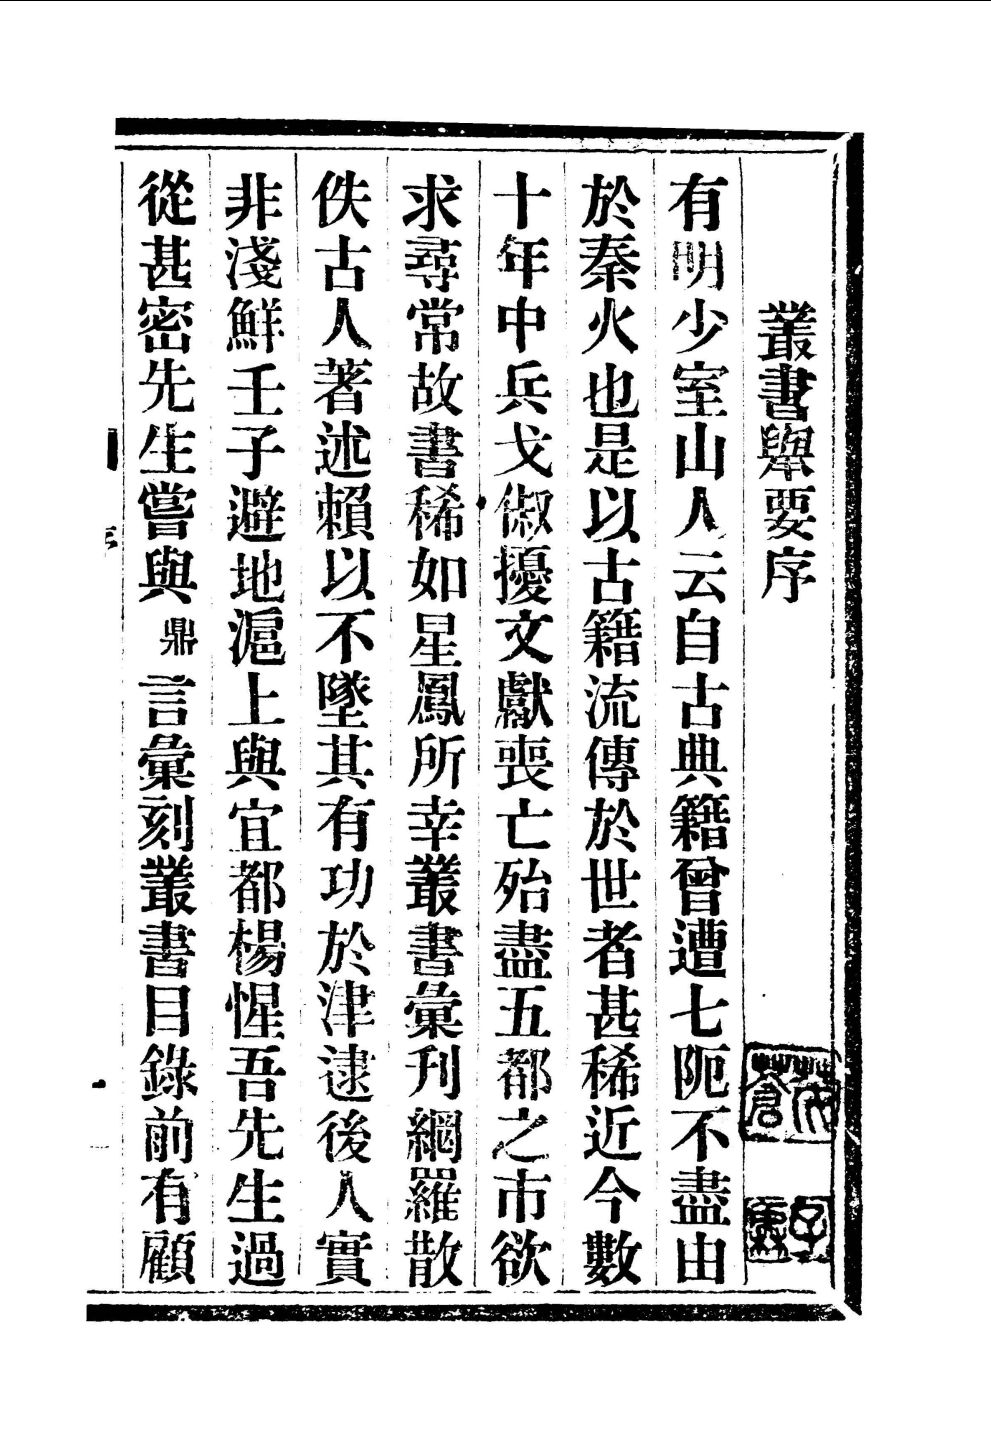 叢書舉要序
有明少室山人云自古典籍曾遭七阨不盡由
於秦火也是以古籍流傳於世者甚稀近今數
十年中兵戈俶擾文獻喪亡殆盡五都之市欲
求尋常故書稀如星鳳所幸叢書彙刊網羅散
佚古人著述賴以不墜其有功於津逮後人實
非淺鮮壬子避地滬上與宜都楊惺吾先生過
從甚密先生嘗與鼎言彙刻叢書目錄前有顧